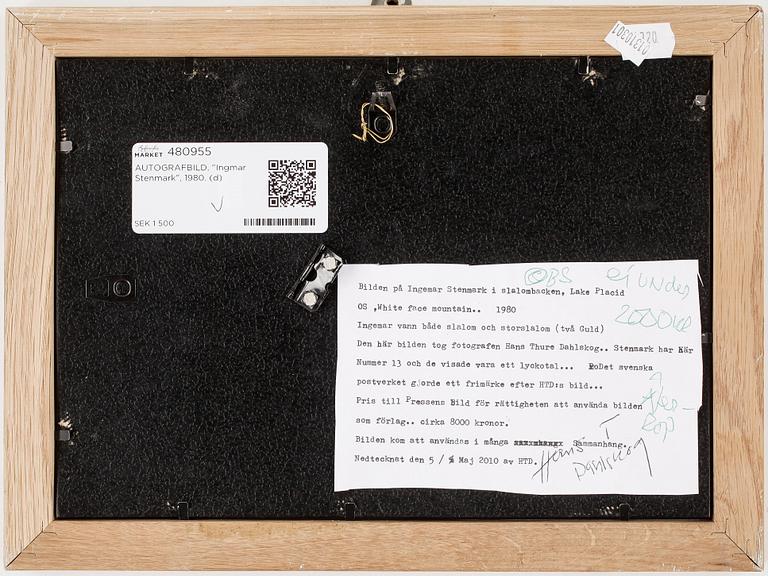 01310301
220
MARKET 480955
AUTOGRAFBILD, "Ingmar
Stenmark", 1980. (d)
SEK 1 500
OBS ej under
2000 kr
Bilden på Ingemar Stenmark i slalombacken, Lake Placid
OS ,White face mountain.. 1980
Ingemar vann både slalom och storslalom (två Guld)
Den här bilden tog fotografen Hans Thure Dahlskog.. Stenmark har här
Nummer 13 och de visade vara ett lyckotal... Det svenska
postverket gjorde ett frimärke efter HTD:s bild...
Pris till Pressens Bild för rättigheten att använda bilden
som förlag.. cirka 8000 kronor.
Bilden kom att användas i många Sammanhang.
Nedtecknat den 5 / Maj 2010 av HTD.
Hans T
Dahlskog